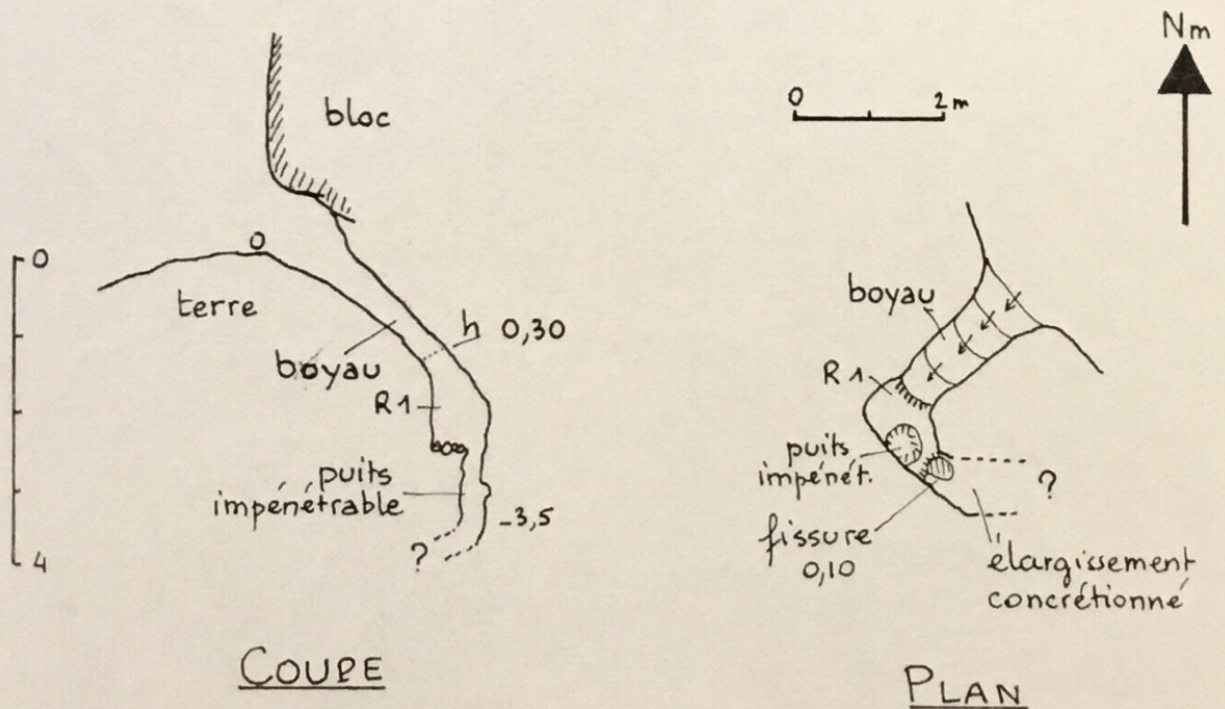 bloc
0
0
terre
boyau
h 0,30
R1
puits
impénétrable
-3,5
?
4
COUPE
Nm
0 2m
boyau
R1
puits
impénét.
fissure
0,10
?
élargissement
concrétionné
PLAN